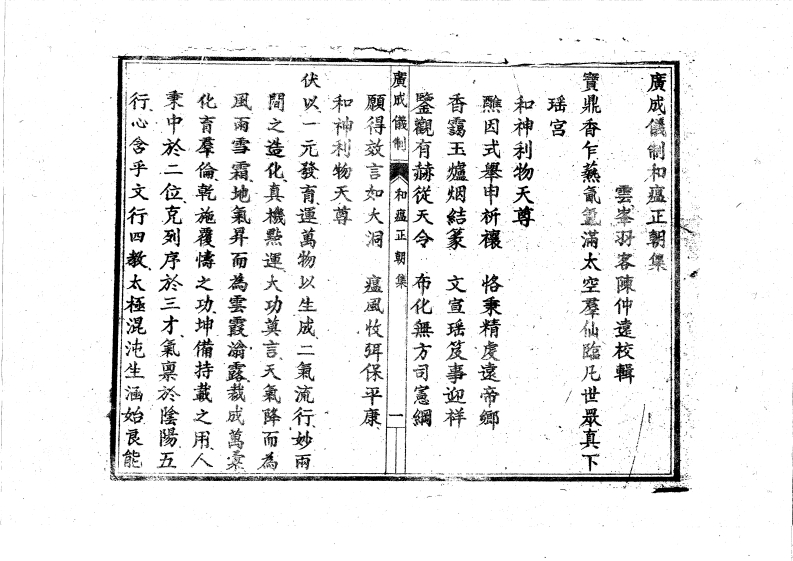 廣成儀制和瘟正朝集
雲峯羽客陳仲遠校輯
寶鼎香乍蒸氤氳滿太空羣仙臨凡世眾真下
瑶宫
和神利物天尊
醮因式舉申祈禳　恪秉精虔遠帝鄉
香靄玉爐烟結篆　文宣瑶笈事迎祥
鑒觀有赫從天令　布化無方司憲綱
廣成儀制　和瘟正朝集　一
願得效言如大洞　瘟風攸弭保平康
和神利物天尊
伏以一元發育運萬物以生成二氣流行妙兩
間之造化真機點運大功莫言天氣降而為
風雨雪霜地氣昇而為雲霞瀚露裁成萬彙
化育羣倫乾施覆幬之功坤備持載之用人
秉中於二位克列序於三才氣稟於陰陽五
行心含乎文行四教太極混沌生涵始良能